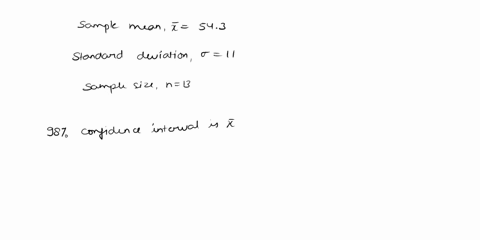 Sample mean, x̄ = 54.3
Standard deviation, σ = 11
Sample size, n = 13
98% confidence interval is x̄